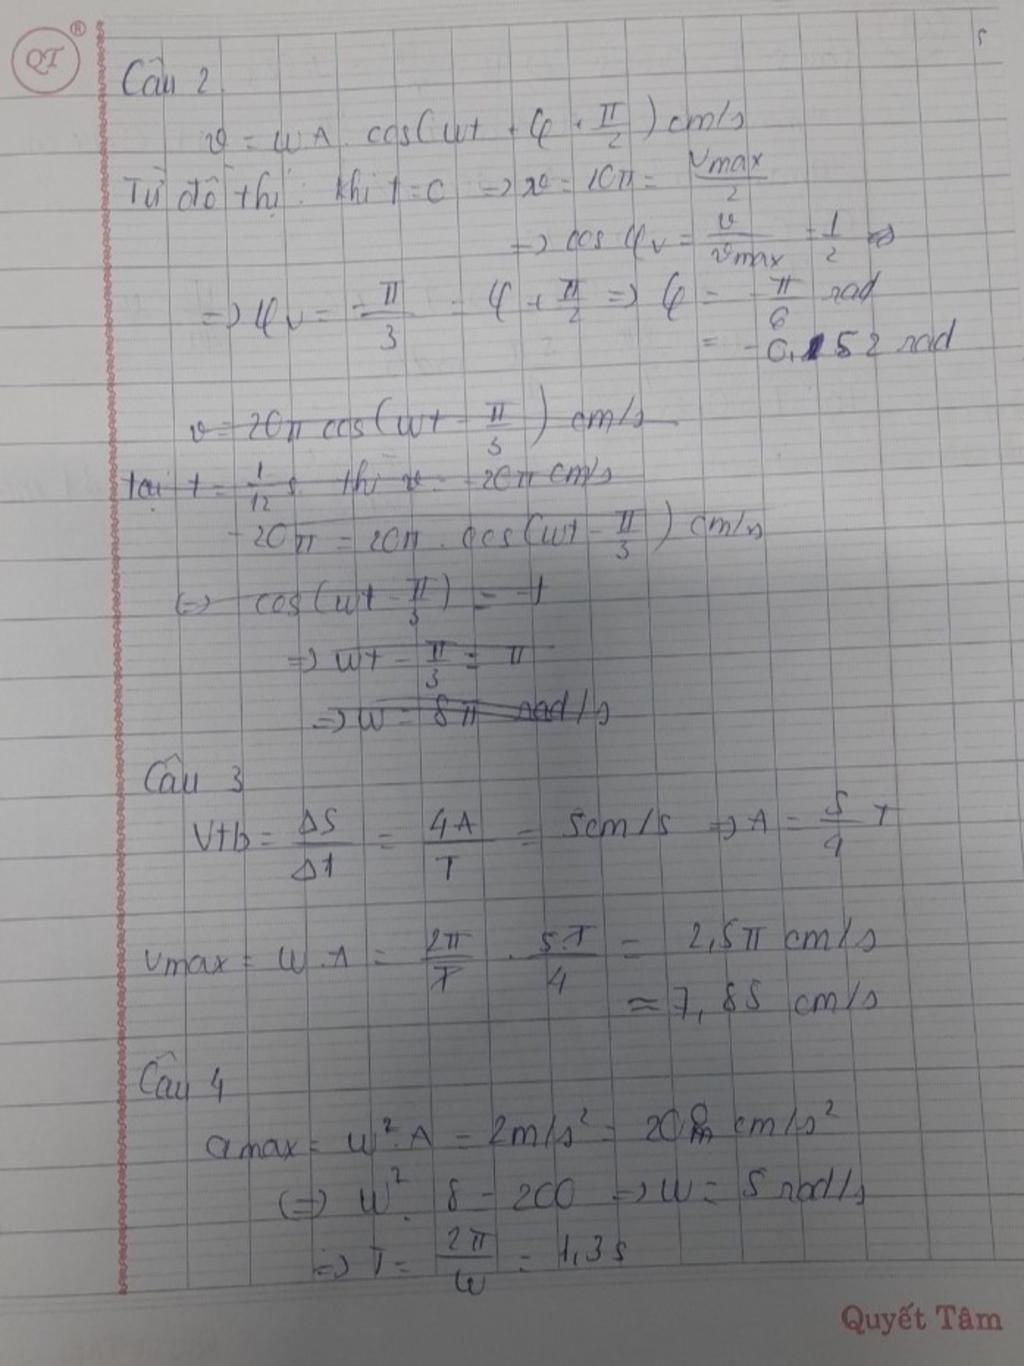 QT ®
Câu 2
v = ωA cos(ωt + φ + π/2) cm/s
Từ đồ thị: khi t = 0 => v = 10π = vmax/2
=> cos φv = v/vmax = 1/2 =>
=> φv = -π/3 = φ + π/2 => φ = -π/6 rad
= -0,52 rad
v = 20π cos(ωt - π/3) cm/s
tại t = 1/12 s thì v = -20π cm/s
-20π = 20π . cos(ωt - π/3) cm/s
<=> cos(ωt - π/3) = -1
=> ωt - π/3 = π
=> ω = 8π rad/s
Câu 3
Vtb = ΔS/Δt = 4A/T = 5cm/s => A = 5/4 T
vmax = ω.A = 2π/T . 5.T/4 = 2,5π cm/s
≈ 7,85 cm/s
Câu 4
amax = ω².A = 2m/s² = 200 cm/s²
<=> ω². 8 = 200 => ω = 5 rad/s
=> T = 2π/ω = 1,3s
Quyết Tâm